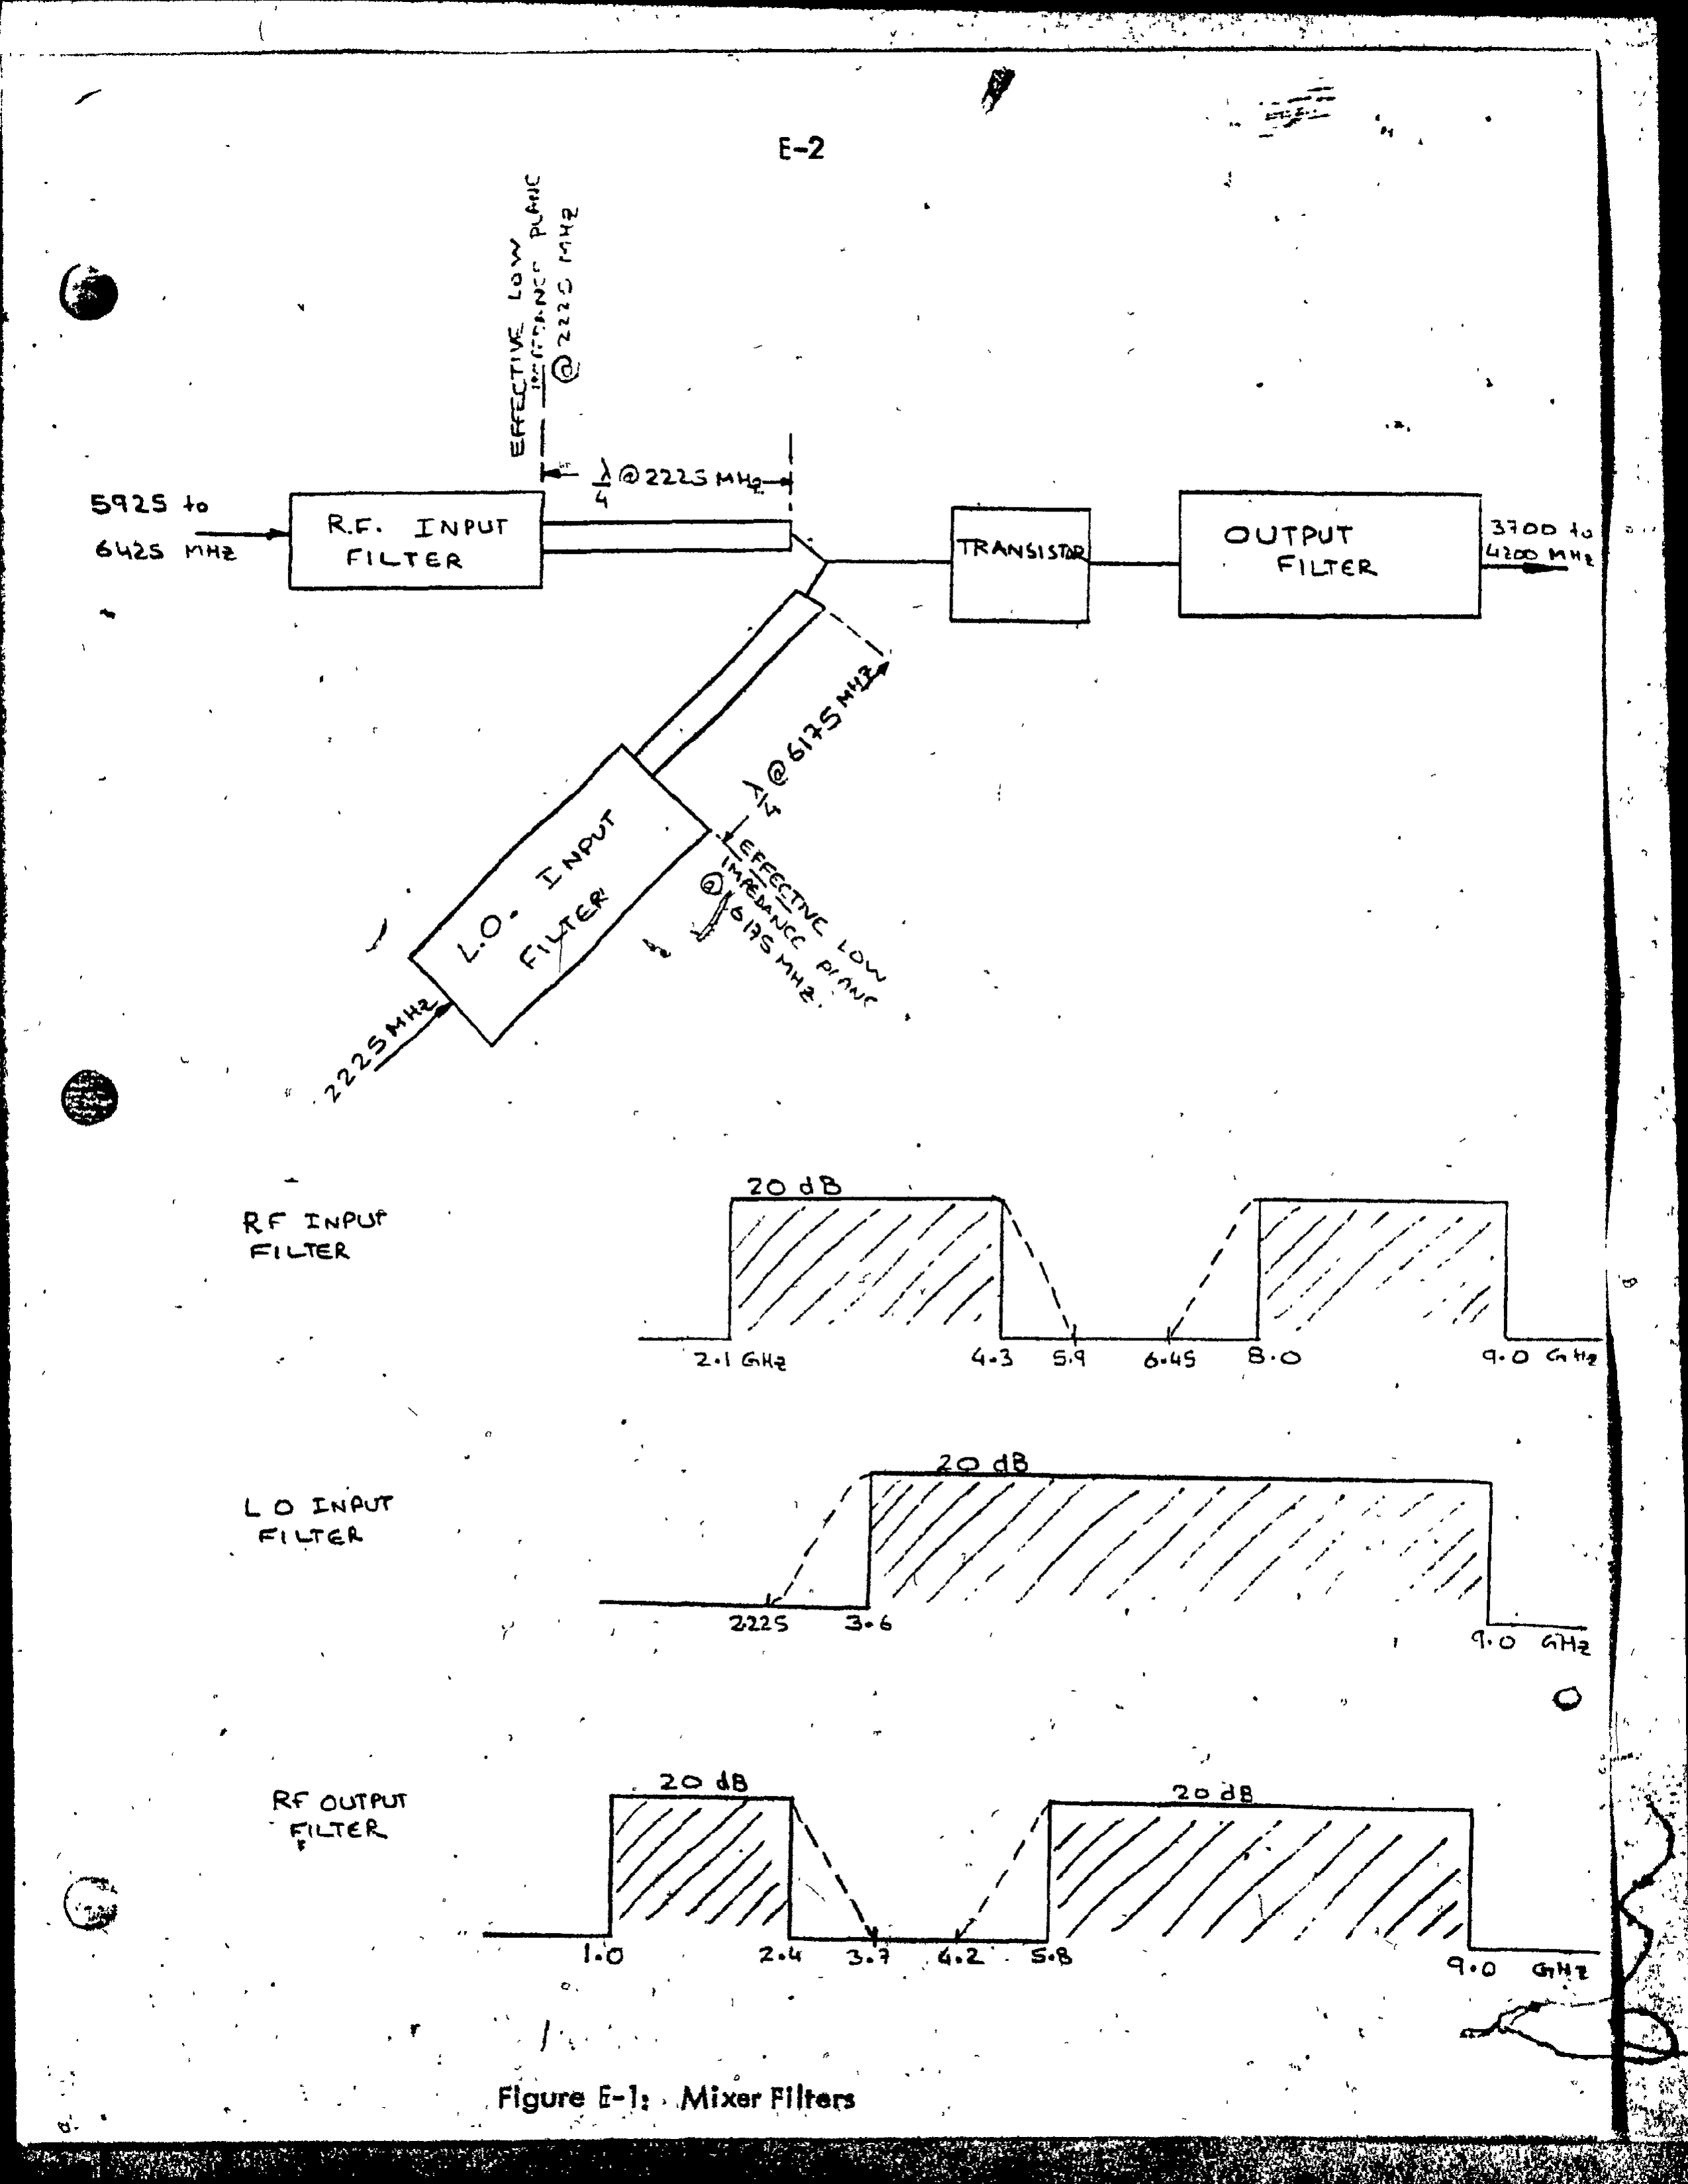 E-2
EFFECTIVE LOW
IMPEDANCE PLANE
@ 2225 MHZ
λ/4 @ 2225 MHZ
5925 to
6425 MHZ
R.F. INPUT
FILTER
TRANSISTOR
OUTPUT
FILTER
3700 to
4200 MHZ
λ/4 @ 6175 MHZ
EFFECTIVE LOW
IMPEDANCE PLANE
@ 6175 MHZ.
L.O. INPUT
FILTER
2225 MHZ
RF INPUT
FILTER
20 dB
2.1 GHZ 4.3 5.9 6.45 8.0 9.0 GHZ
L O INPUT
FILTER
20 dB
2225 3.6 9.0 GHZ
RF OUTPUT
FILTER
20 dB 20 dB
1.0 2.4 3.7 4.2 5.8 9.0 GHZ
Figure E-1: Mixer Filters